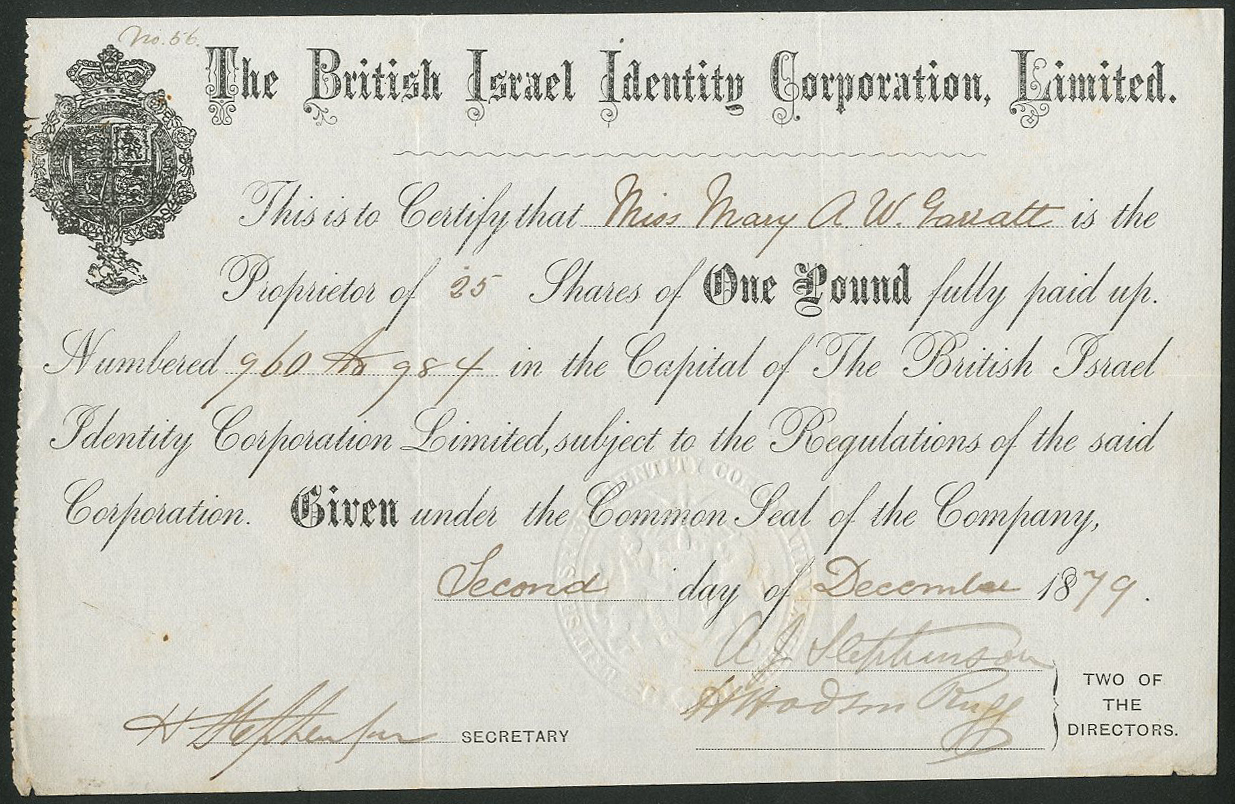 No. 56.
The British Israel Identity Corporation, Limited.
This is to Certify that Miss Mary A. W. Garratt is the
Proprietor of 25 Shares of One Pound fully paid up.
Numbered 960 to 984 in the Capital of The British Israel
Identity Corporation Limited, subject to the Regulations of the said
Corporation. Given under the Common Seal of the Company,
Second day of December 1879.
A J Stephenson
H Hodson Rugg
TWO OF
THE
DIRECTORS.
H Stephenson SECRETARY
IDENTITY